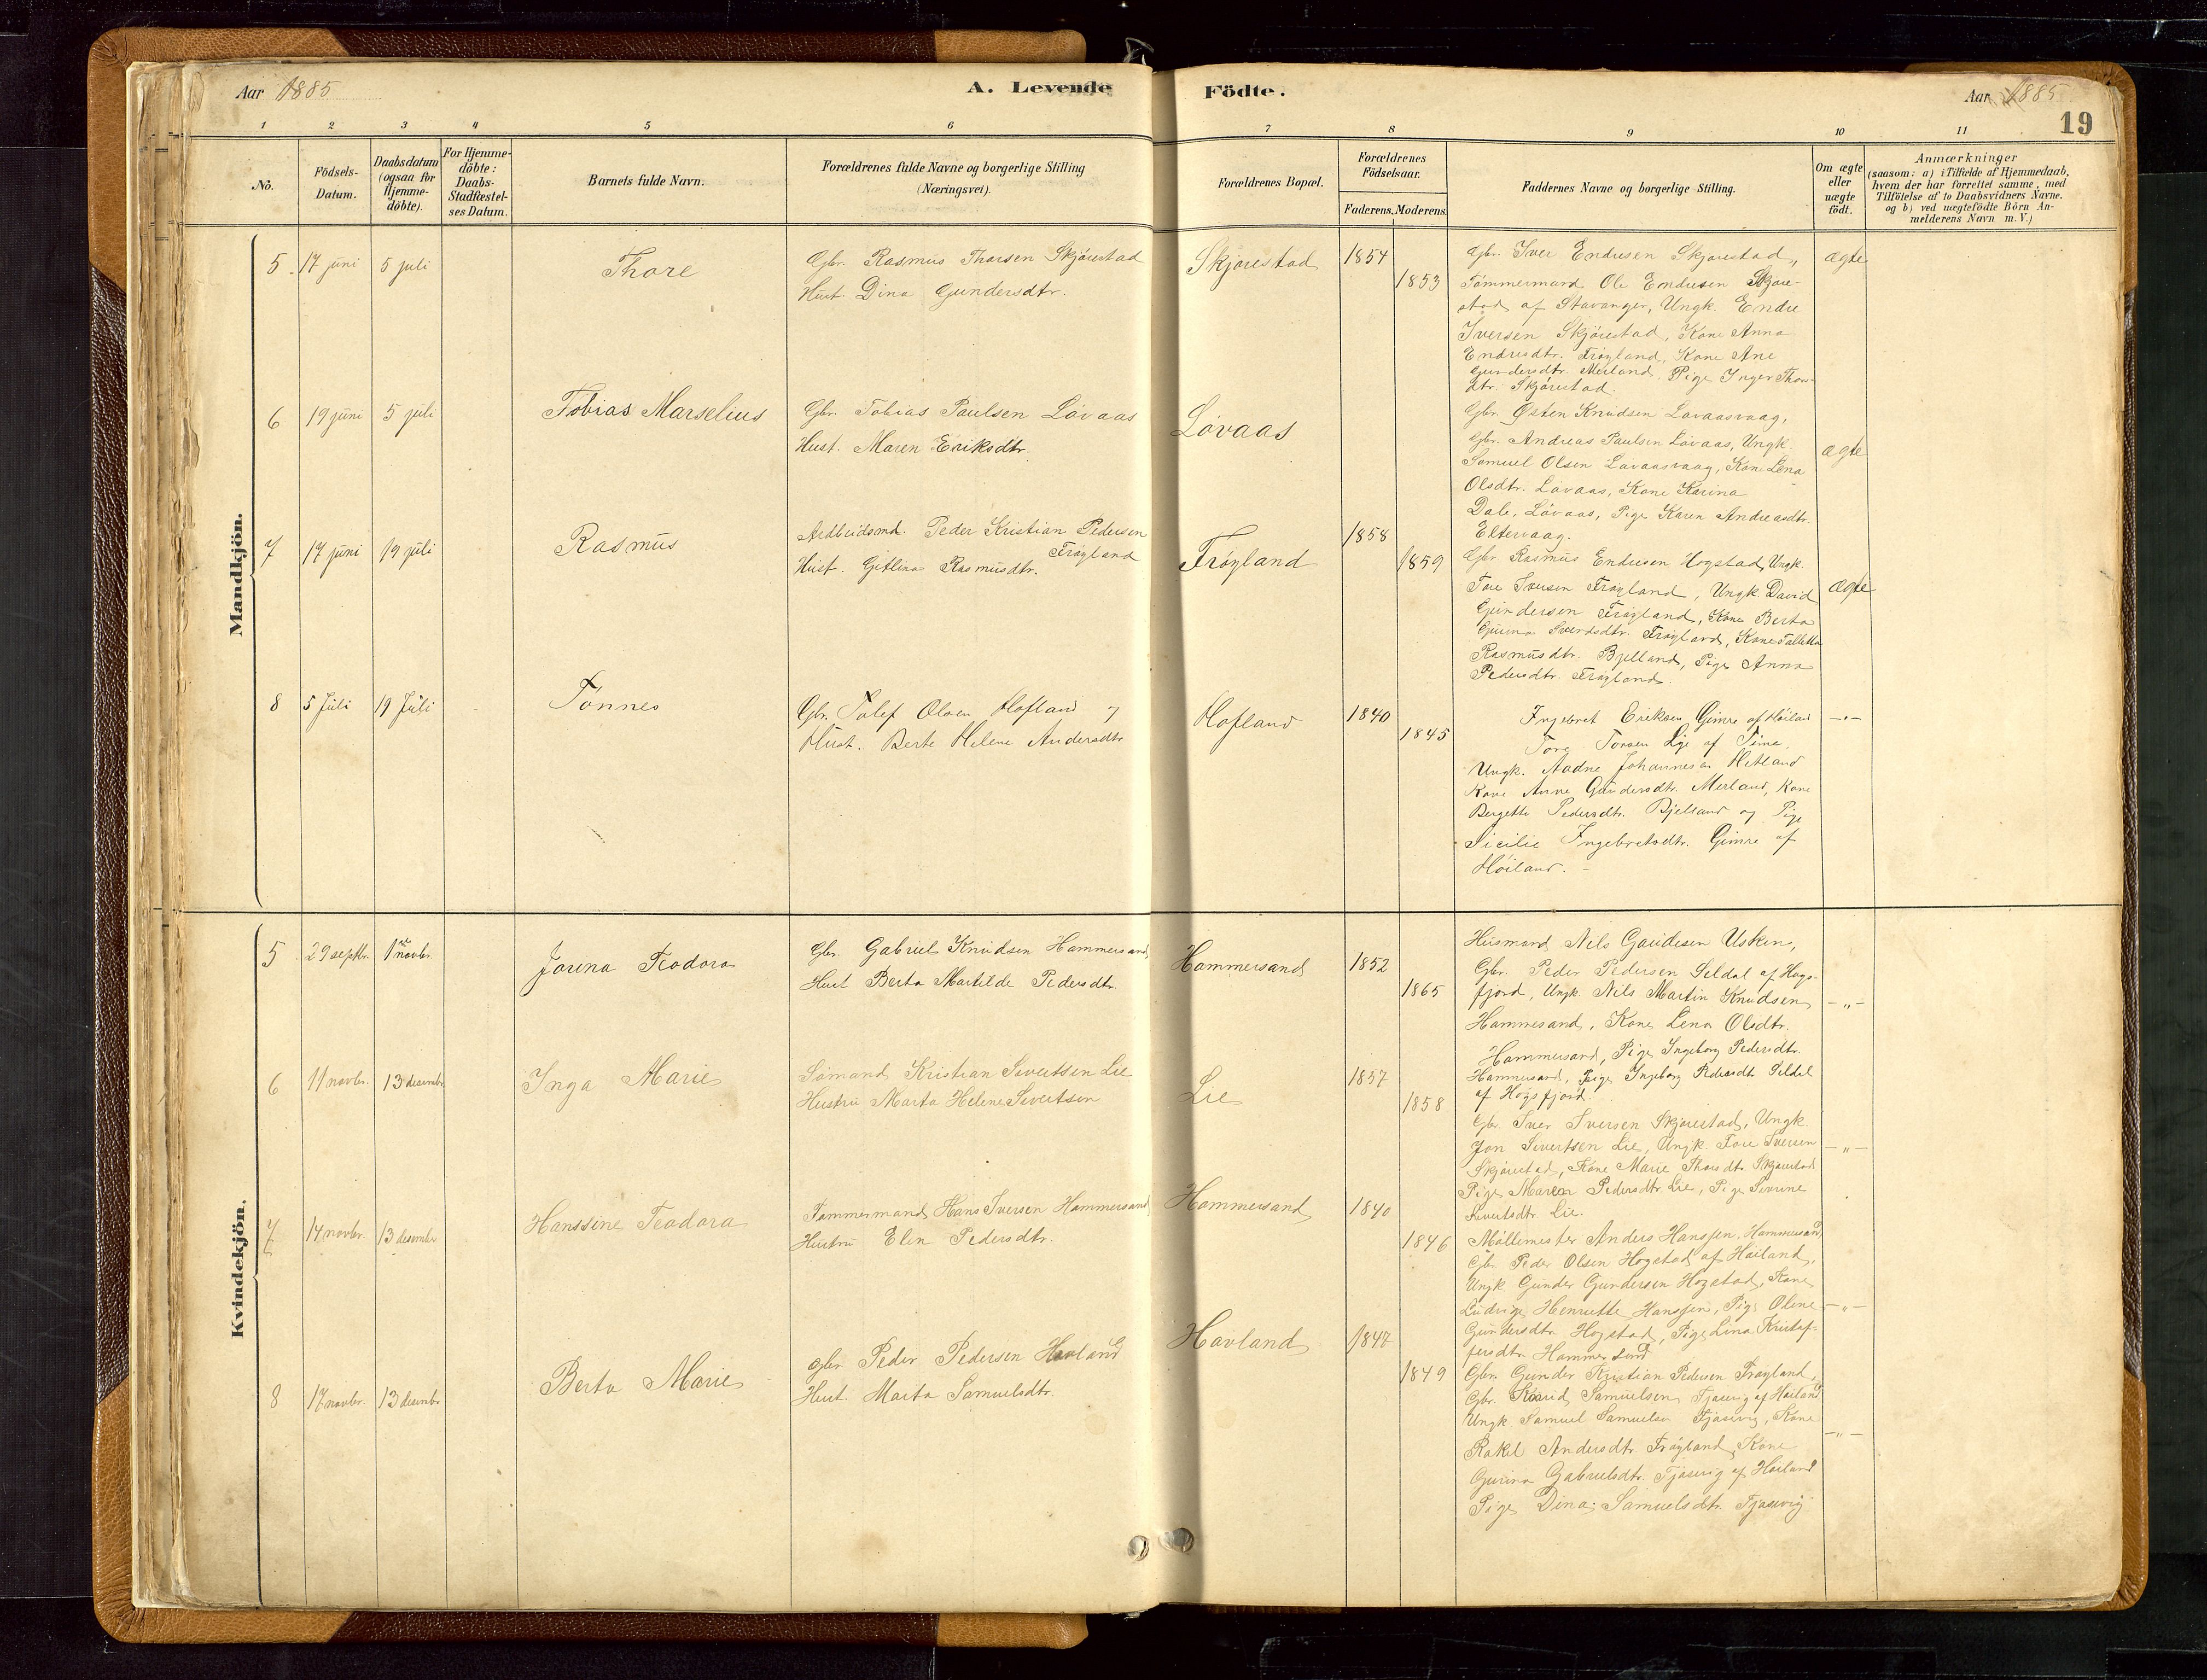 Aar 1885
A. Levende Födte.
Aar 1885
19
1 2 3 4 5 6 7 8 9 10 11
No.
Födsels-Datum.
Daabsdatum (ogsaa for Hjemme-döbte).
For Hjemme-döbte: Daabs-Stadfæstel-ses Datum.
Barnets fulde Navn.
Forældrenes fulde Navne og borgerlige Stilling
(Næringsvei).
Forældrenes Bopæl.
Forældrenes Födselsaar.
Faderens. Moderens.
Faddernes Navne og borgerlige Stilling.
Om ægte eller uægte födt.
Anmærkninger
(saasom: a) i Tilfælde af Hjemmedaab,
hvem der har forrettet samme, med
Tilföielse af to Daabsvidners Navne.
og b) ved uægtefödte Börn An-
melderens Navn m. V.)
Mandkjön.
5 17 juni 5 juli
Thore
Gbr. Rasmus Thorsen Skjørestad
Hust Dina Gundersdtr.
Skjørestad
1854
1853
Gbr. Iver Endresen Skjørestad,
Tømmermand Ole Endresen Skjøre-
stad af Stavanger, Ungk. Endre
Iversen Skjørestad, Kone Anna
Endresdtr. Frøyland, Kone Ane
Gundersdtr. Meiland, Pige Inger Thors-
dtr. Skjørestad.
ægte
6 19 juni 5 juli
Tobias Marselius
Gbr. Tobias Paulsen Løvaas
Hust. Maren Eriksdtr.
Løvaas
Gbr. Østen Knudsen Løvaasvaag,
Gbr. Andreas Paulsen Løvaas, Ungk.
Samuel Olsen Løvaasvaag, Kone Lena
Olsdtr. Løvaas, Kone Karina
Dale, Løvaas, Pige Karen Andreasdtr.
Eltervaag.
ægte
7 17 juni 19 juli
Rasmus
Arbeidsmd. Peder Kristian Pedersen
Frøyland
Hust. Gitlina Rasmusdtr.
Frøyland
1858
1859
Gbr Rasmus Endresen Hogstad, Ungk.
Tore Iversen Frøyland, Ungk David
Gundersen Frøyland, Kone Berta
Gurina Sverdsdtr. Frøyland, Kone Talletta
Rasmusdtr. Bjelland, Pige Anna
Pedersdtr. Frøyland.
ægte
8 5 Juli 19 Juli
Tønnes
Gbr. Tolef Olsen Hofland og
Hust. Berte Helene Andersdtr
Hofland
1840
1845
Ingebret Eriksen Gimre af Høiland
Tore Torsen Lye af Time.
Ungk. Aadne Johannesen Hetland
Kone Anne Gundersdtr. Merland, Kone
Bergette Pedersdtr. Bjelland og Pige
Sicilie Ingebretsdtr. Gimre af
Høiland.
— " —
Kvindekjön.
5 29 septbr. 1ste novbr.
Jorina Teodora
Gbr. Gabriel Knudsen Hammersand,
Hust Berta Martilde Pedersdtr.
Hammersand
1852
1865
Husmand Nils Gaudesen Usken,
Gbr. Peder Pedersen Seldal af Høgs-
fjord, Ungk. Nils Martin Knudsen
Hammersand, Kone Lena Olsdtr.
Hammersand, Pige Ingeborg Pedersdtr.
Hammersand, Pige Ingeborg Pedersdtr Seldal
af Høgsfjord.
— " —
6 11 novbr. 13 desembr
Inga Marie
Sømand Kristian Sivertsen Lie
Hustru Marta Helene Sivertsen
Lie
1857
1858
Gbr. Iver Iversen Skjørestad, Ungk.
Jon Sivertsen Lie, Ungk. Tore Iversen
Skjørestad, Kone Marie Thorsdtr. Skjørestad
Pige Maren Pedersdtr. Lie, Pige Sivrine
Sivertsdtr. Lie.
— " —
7 14 novbr. 13 desembr
Hanssine Teodora
Tømmermand Hans Iversen Hammersand
Hustru Elen Pedersdtr.
Hammersand
1840
1846
Møllemester Anders Hanssen, Hammersand,
Gbr. Peder Olsen Hogstad af Høiland,
Ungk Gunder Gundersen Hogstad, Kone
Ludvige Henriette Hanssen, Pige Oline
Gundersdtr. Hogstad, Pige Lina Kristof-
fersdtr. Hammersand
— " —
8 17 novbr. 13 desembr
Berta Marie
gbr. Peder Pedersen Havland
Hust. Marta Samuelsdtr.
Havland
1847
1849
Gbr. Gunder Kristian Pedersen Frøyland,
Gbr. Knud Samuelsen Tjøsvig af Høiland
Ungk Samuel Samuelsen Tjøsvig, Kone
Rakel Andersdtr Frøyland, Kone
Gurina Gabrielsdtr. Tjøsvig af Høiland
Pige Dina Samuelsdtr. Tjøsvig
— " —